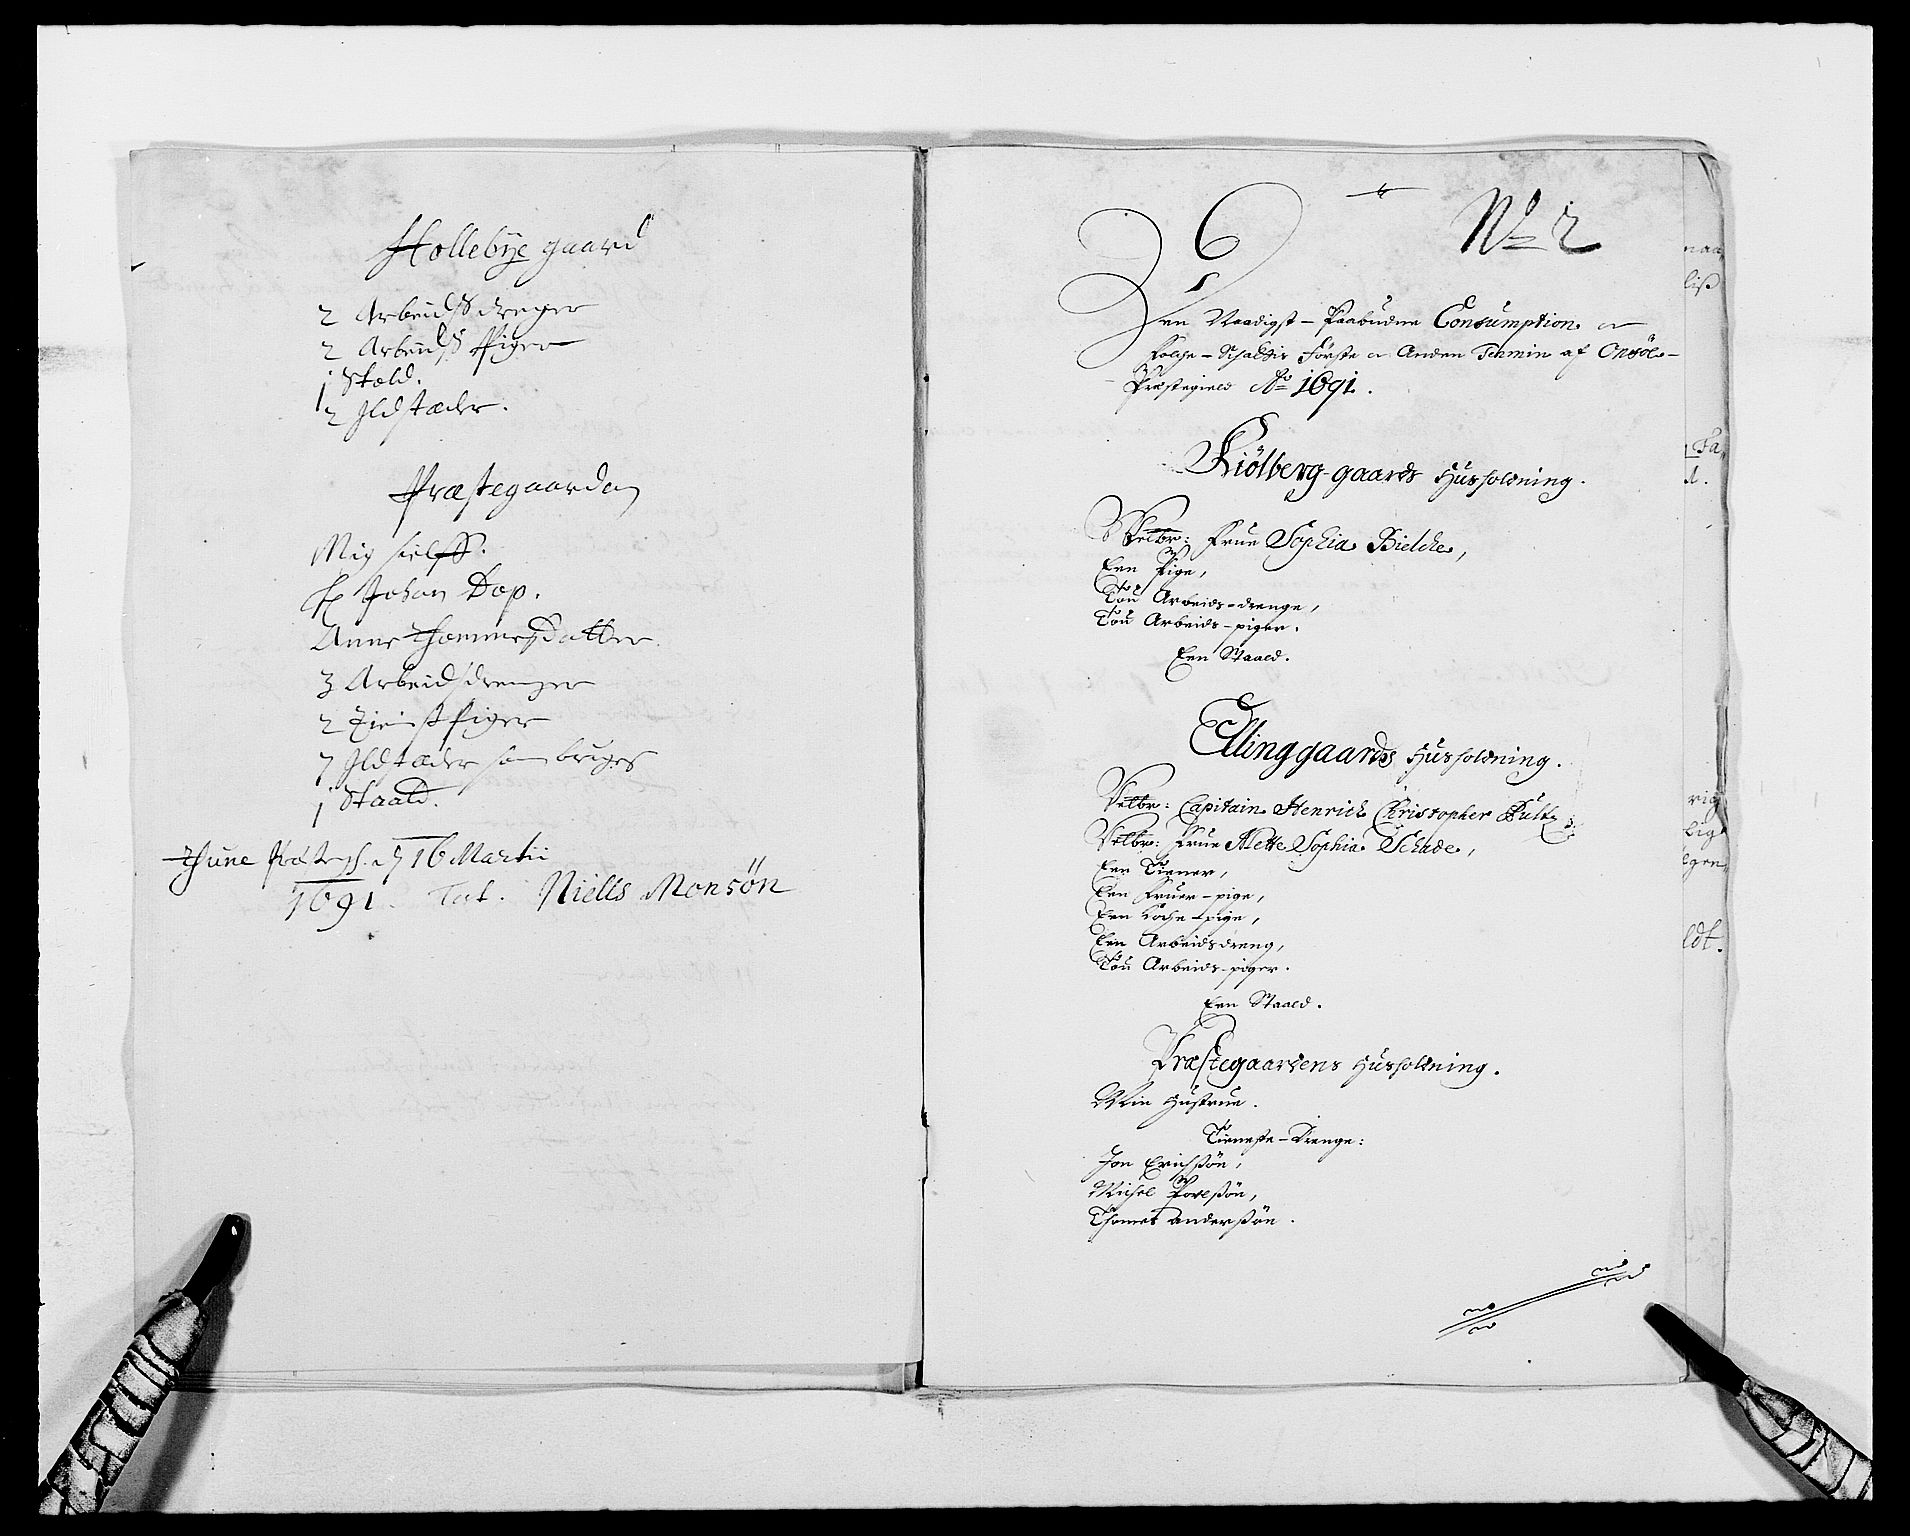 Hollebÿe gaard
2 Arbeids drenger
2 Arbeids Piger
1 Stald.
2 Ildstæder.
Præstegaarden
Mig sielff.
H Johan Dop.
Anne Thommesdatter.
3 Arbeidsdrenger
2 Tienist Piger
7 Ildstæder som bruges
1 Staald.
Thune d 16 Martii
1691. Tat. Niells Monsøn
No 2
6
Den Naadigst-Paabudne Consumption oc
Folche-Schattis Første oc Anden Termin af Onsöe-
Præstegield Ao 1691.
Kiölberg-gaards Huusholdning.
Velbr: Frue Sophia Bielche,
Een Pige,
Tou Arbeids-drenge,
Tou Arbeids-piger.
Een Staald.
Ellinggaards Huusholdning.
Velbr: Capitain Henrich Christopher Bultz
Velbr: Frue Mette Sophia Schade,
Een Tiener,
Een Fruer-pige,
Een Koche-pige,
Een Arbeidsdreng,
Tou Arbeids-piger.
Een Staald.
Præstegaardens Huusholdning.
Min Hustrue.
Tieneste-Drenge:
Jon Erichsøn,
Michel Povelsøn,
Thomes Andersøn.
naa
liß
Fa
rig
lig
egen,
ldt.